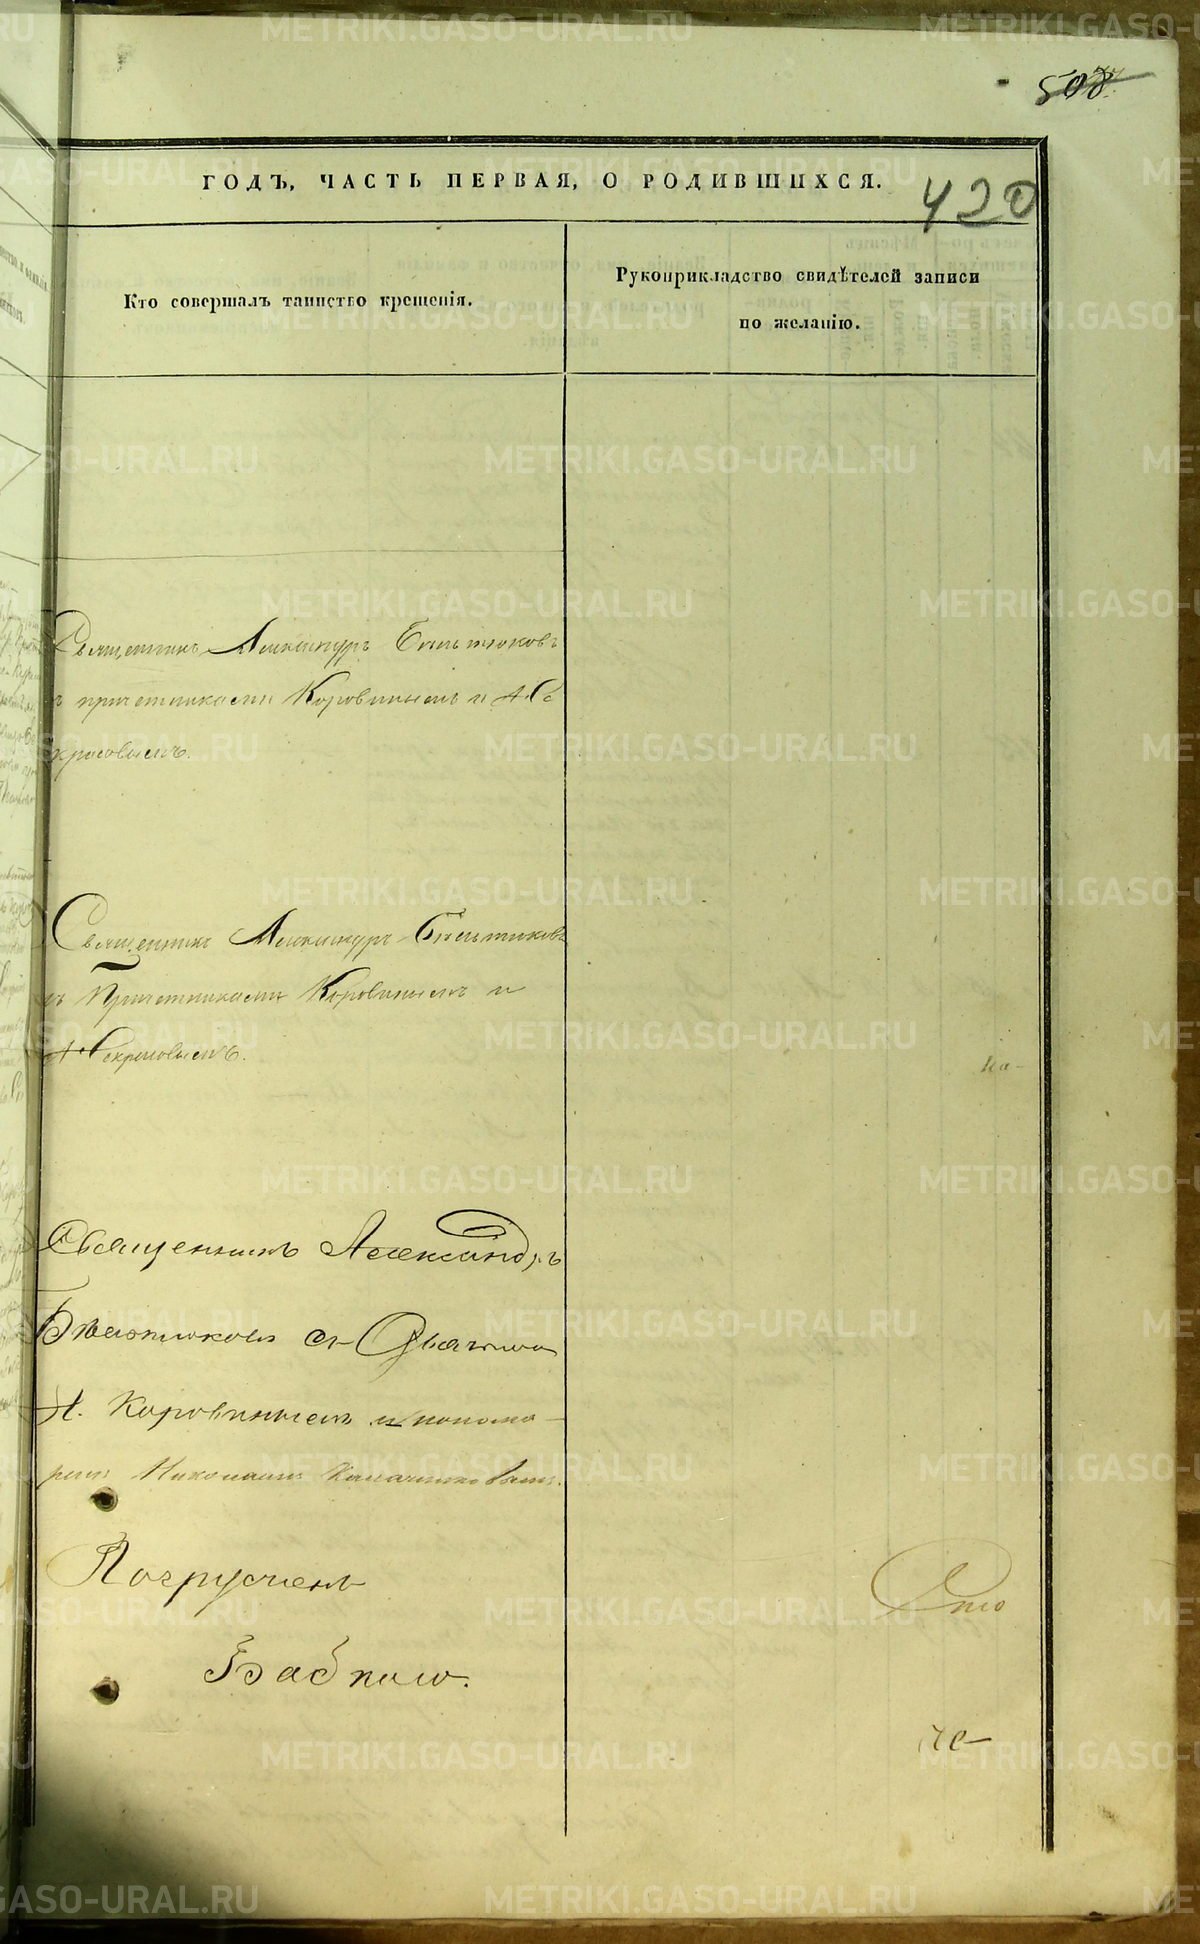 508
ГОДЪ, ЧАСТЬ ПЕРВАЯ, О РОДИВШИХСЯ.
420
Кто совершалъ таинство крещенія.
Рукоприкладство свидѣтелей записи
по желанію.
Священникъ Александръ Бѣльтюковъ
съ причетниками Коровинымъ и Не
красовымъ.
Священникъ Александръ Бѣльтюковъ
съ Причетниками Коровинымъ и
Некрасовымъ.
Священникъ Александръ
Бѣльтюковъ съ Дьячкомъ
Н. Коровинымъ и понома-
ремъ Николаемъ
Погруженъ
Бабкою.
METRIKI.GASO-URAL.RU